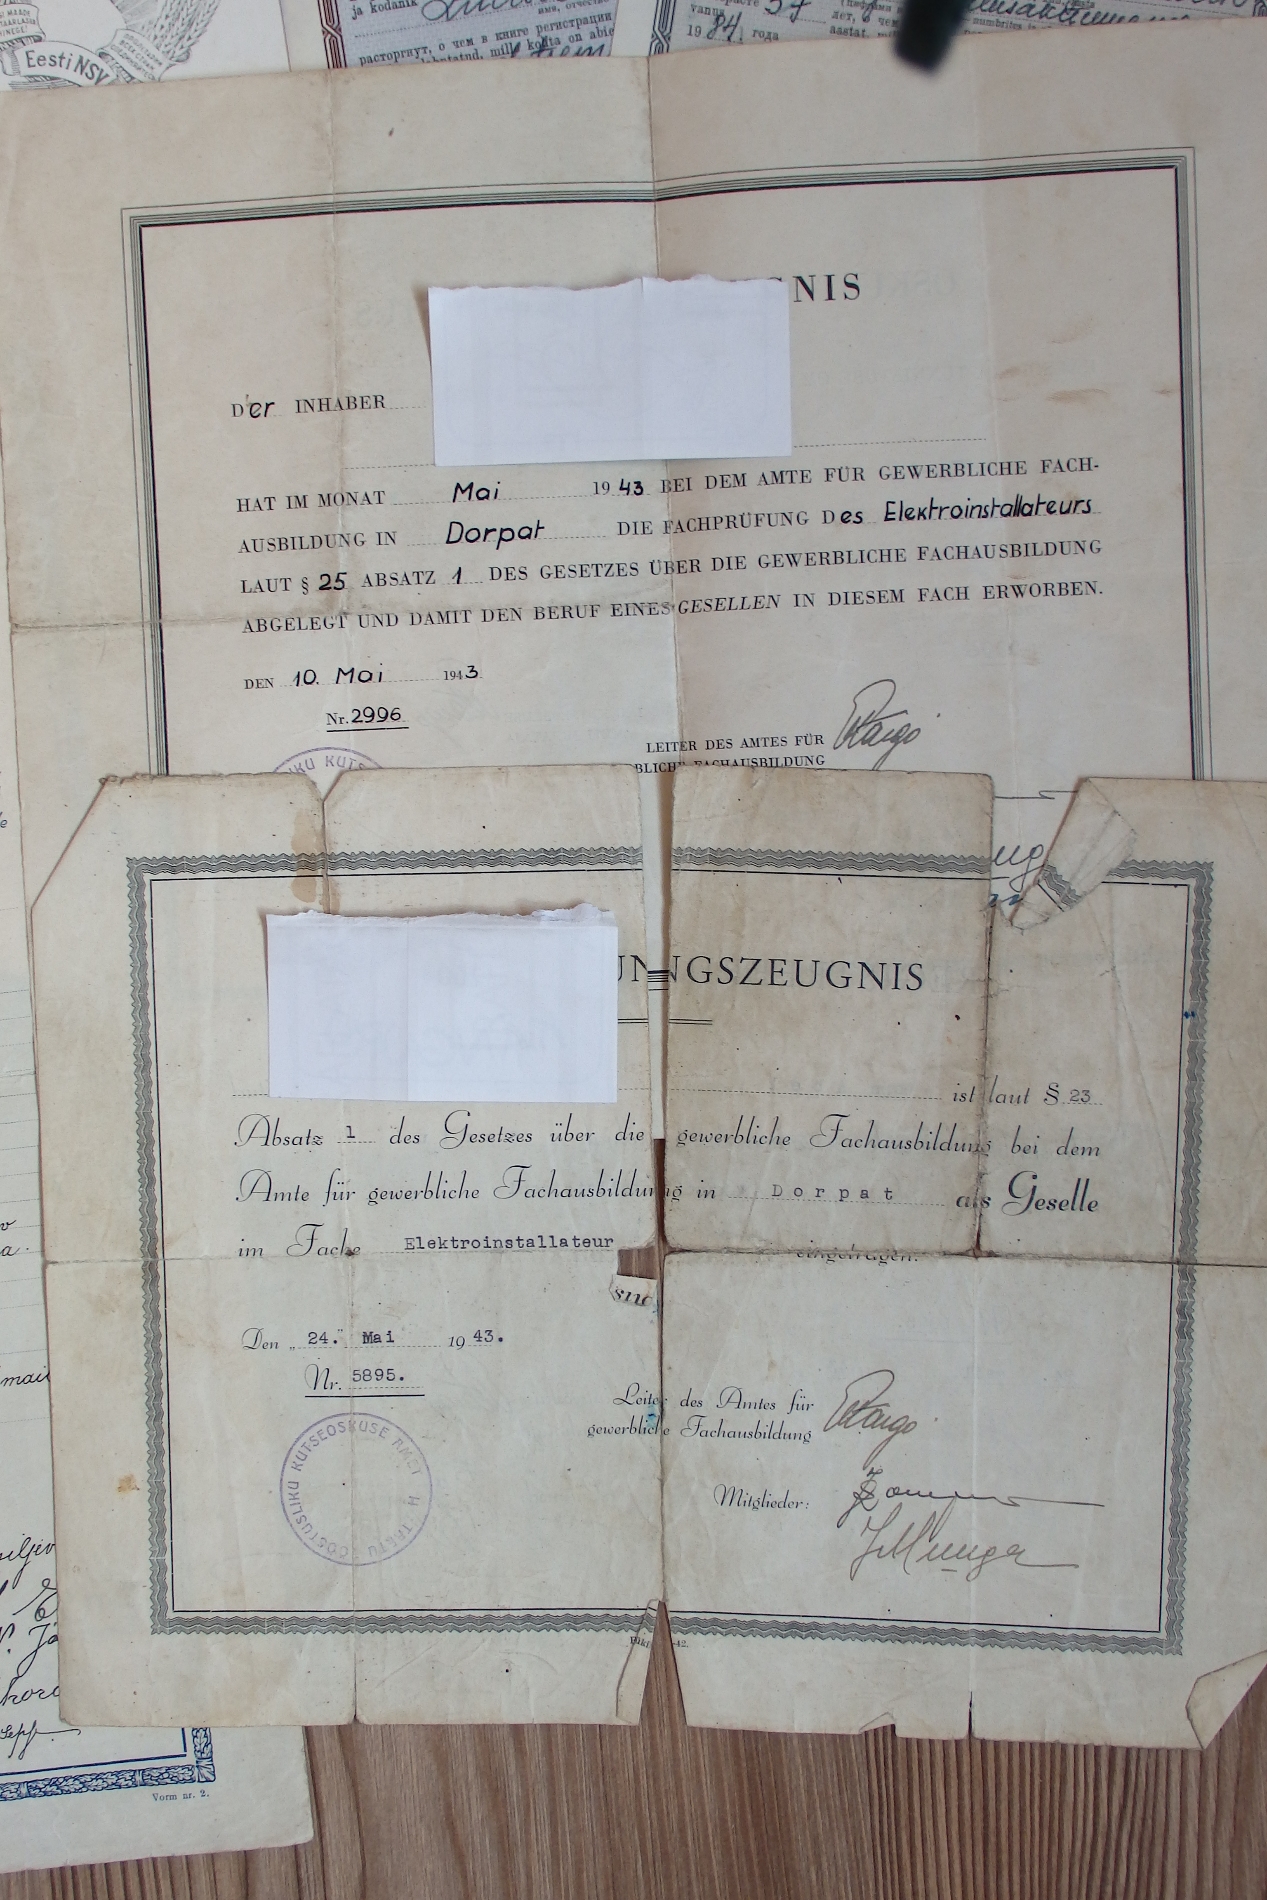 Eesti NSV
ja kodanik
имя, отчество
расторгнут, о чем в книге регистрации
on abie
19 84 года
лет,
aastat,
NIS
Der INHABER
HAT IM MONAT Mai 1943 BEI DEM AMTE FÜR GEWERBLICHE FACH-
AUSBILDUNG IN Dorpat DIE FACHPRÜFUNG Des Elektroinstallateurs
LAUT § 25 ABSATZ 1 DES GESETZES ÜBER DIE GEWERBLICHE FACHAUSBILDUNG
ABGELEGT UND DAMIT DEN BERUF EINES GESELLEN IN DIESEM FACH ERWORBEN.
DEN 10. Mai 1943.
Nr. 2996
LEITER DES AMTES FÜR
BLICHE FACHAUSBILDUNG
IKU KUTS
UNGSZEUGNIS
ist laut § 23
Absatz 1 des Gesetzes über die gewerbliche Fachausbildung bei dem
Amte für gewerbliche Fachausbildung in Dorpat als Geselle
im Fache Elektroinstallateur
eingetragen.
Den „24." Mai 1943.
Nr. 5895.
Leiter des Amtes für
gewerbliche Fachausbildung
Mitglieder:
TÖÖSTUSLIKU KUTSEOSKUSE AMET
TARTU
Vorm nr. 2.